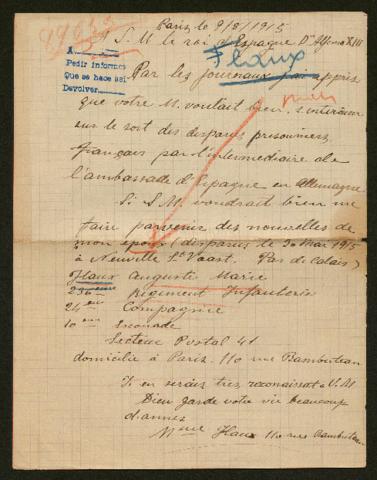 Paris, le 9/8/1915
A S. M. le roi d'Espagne Dn Alfonso XIII
A
Pedir informes
Que se hace así
Devolver
Flaux
Par les journaux j'ai appris
que votre M. voulait bien s'intérioser
sur le sort des disparus prisonniers
français par l'intermediaire de
l'ambassade d'Espagne en Allemagne
Si S. M. voudrait bien me
faire parvenir des nouvelles de
mon époux (disparus le 30 Mai 1915
à Neuville St Vaast. Pas de Calais)
Flaux Auguste Marie
236eme Régiment Infanterie
24eme Compagnie
10eme Escouade
Secteur Postal 41
domicilié à Paris. 110 rue Rambuteau
Je en serais très reconaisate V. M.
Dieu garde votre vie beaucoup
d'annes
Mme Flaux 110 rue Rambuteau